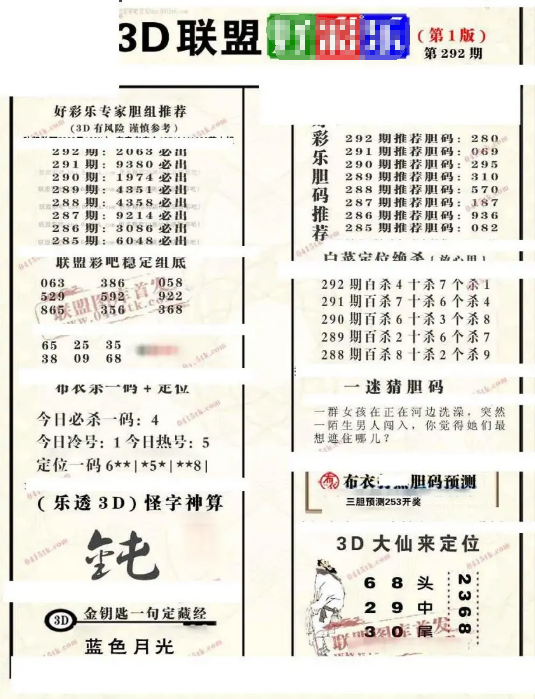 3D联盟好彩乐
(第1版)
第292期
好彩乐专家胆组推荐
(3D有风险 谨慎参考)
292期:2063必出
291期:9380必出
290期:1974必出
289期:4351必出
288期:4358必出
287期:9214必出
286期:3086必出
285期:6048必出
联盟彩吧稳定组底
063 386 058
529 592 922
865 356 368
65 25 35
38 09 68
布衣杀一码+定位
今日必杀一码:4
今日冷号:1今日热号:5
定位一码6**|*5*|**8|
(乐透3D)怪字神算
3D
金钥匙一句定藏经
蓝色月光
彩乐胆码推荐
292期推荐胆码:280
291期推荐胆码:069
290期推荐胆码:295
289期推荐胆码:310
288期推荐胆码:570
287期推荐胆码:187
286期推荐胆码:936
285期推荐胆码:082
白菜定位绝杀(放心用)
292期百杀4十杀7个杀1
291期百杀7十杀6个杀4
290期百杀6十杀3个杀8
289期百杀2十杀6个杀7
288期百杀8十杀2个杀9
一迷猜胆码
一群女孩在正在河边洗澡,突然
一陌生男人闯入,你觉得她们最
想遮住哪儿?
布衣
胆码预测
三胆预测253开奖
3D大仙来定位
6 8 头
2 9 中
3 0 尾
2368